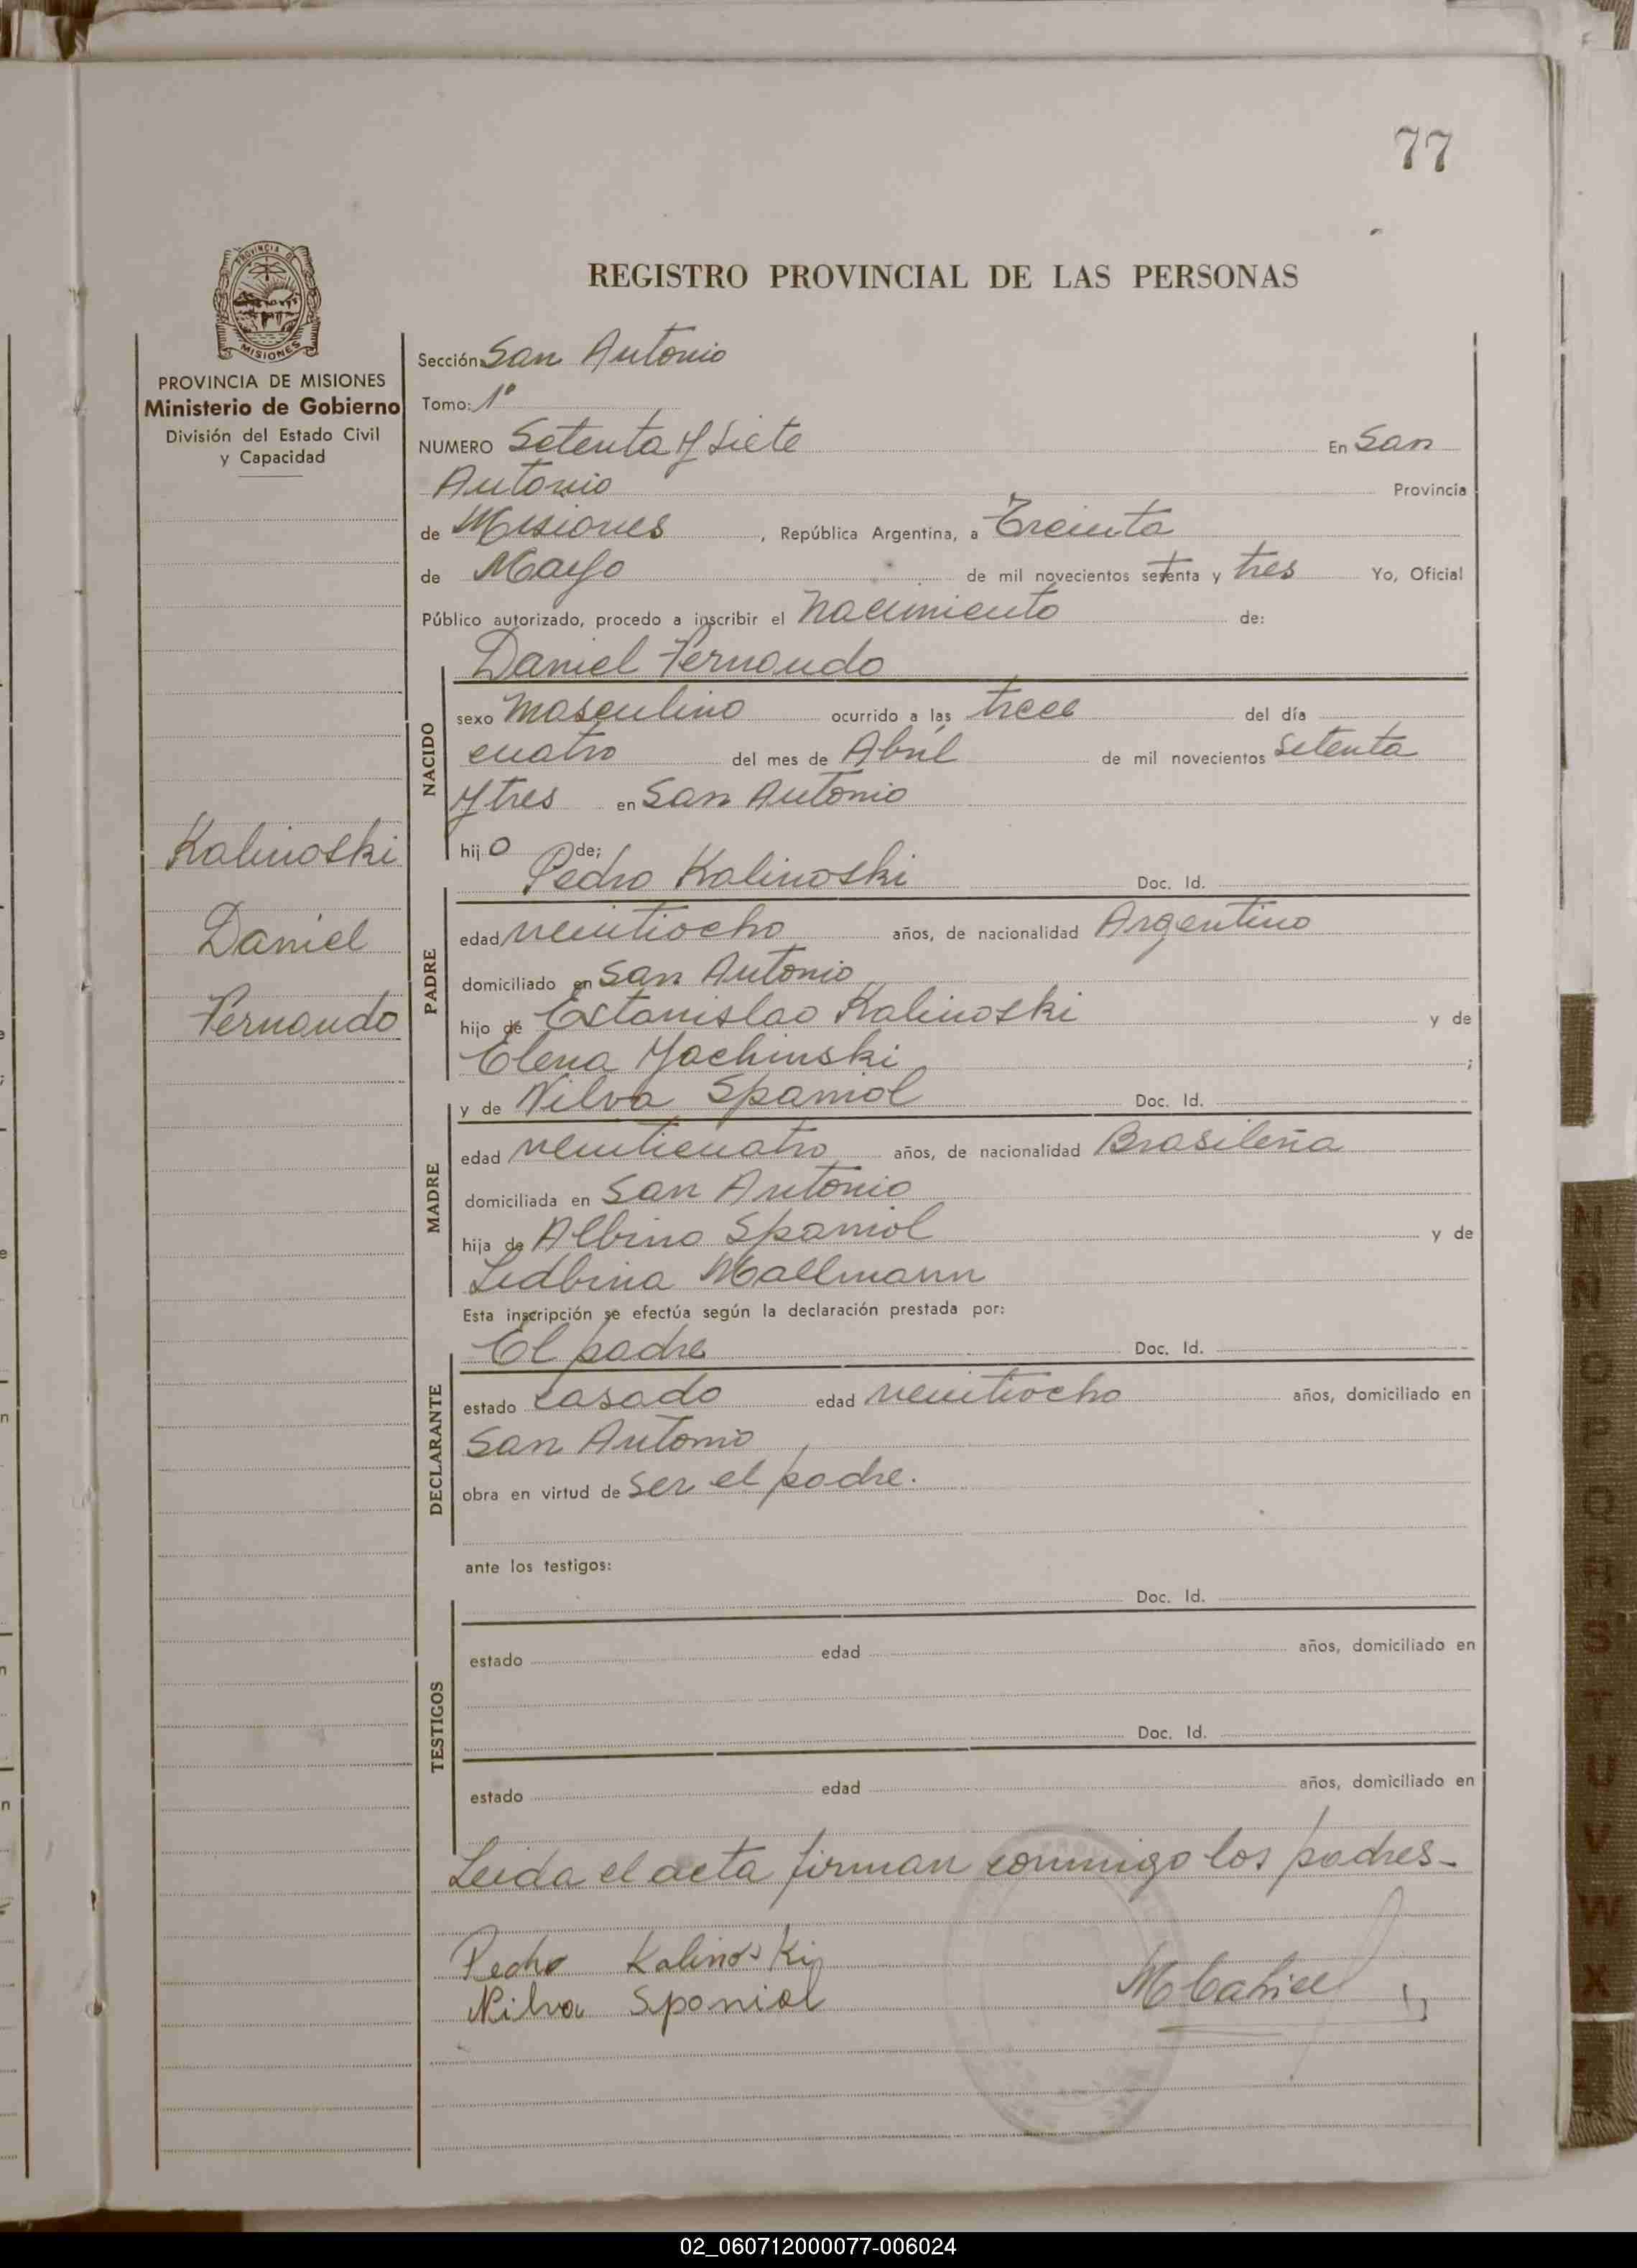 77
REGISTRO PROVINCIAL DE LAS PERSONAS
PROVINCIA DE
MISIONES
PROVINCIA DE MISIONES
Ministerio de Gobierno
División del Estado Civil
y Capacidad
Kalinoski
Daniel
Fernando
Sección: San Antonio
Tomo: 1º
NUMERO Setenta y Siete En San
Antonio Provincia
de Misiones, República Argentina, a Treinta
de Mayo de mil novecientos setenta y tres Yo, Oficial
Público autorizado, procedo a inscribir el nacimiento de:
Daniel Fernando
NACIDO
sexo masculino ocurrido a las trece del día
cuatro del mes de Abril de mil novecientos setenta
y tres en San Antonio
hijo de;
Pedro Kalinoski Doc. Id.
PADRE
edad veintiocho años, de nacionalidad Argentino
domiciliado en San Antonio
hijo de Estanislao Kalinoski y de
Elena Yachinski ;
y de Nilva Spaniol Doc. Id.
MADRE
edad veinticuatro años, de nacionalidad Brasileña
domiciliada en San Antonio
hija de Albino Spaniol y de
Ledbina Mallmann
Esta inscripción se efectúa según la declaración prestada por:
El padre Doc. Id.
DECLARANTE
estado casado edad veintiocho años, domiciliado en
San Antonio,
obra en virtud de ser el padre.
ante los testigos:
Doc. Id.
TESTIGOS
estado edad años, domiciliado en
Doc. Id.
estado edad años, domiciliado en
Leida el acta firman conmigo los padres-
Pedro Kalinoski
Nilva Spaniol
N
Ñ
O
P
Q
R
S
T
U
V
W
X
02_060712000077-006024